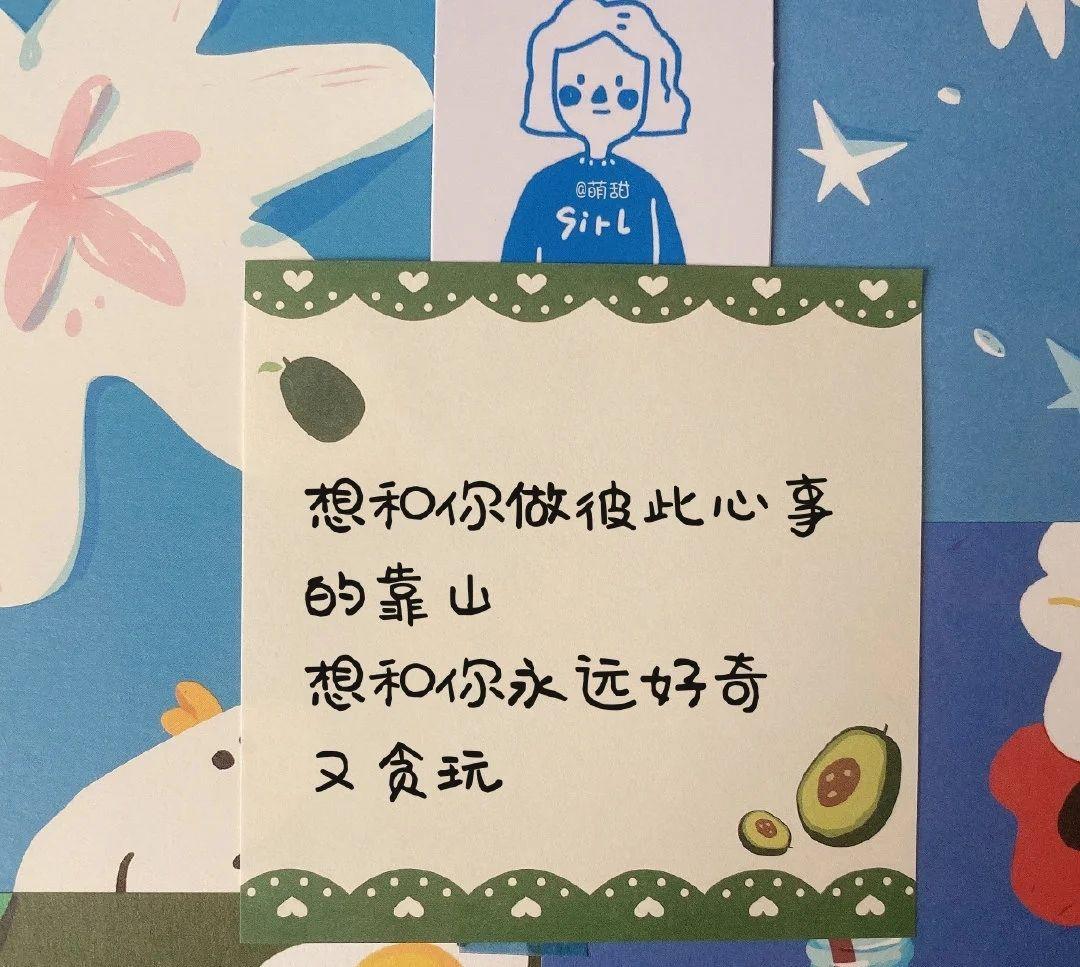 @萌甜
girl
想和你做彼此心事
的靠山
想和你永远好奇
又贪玩